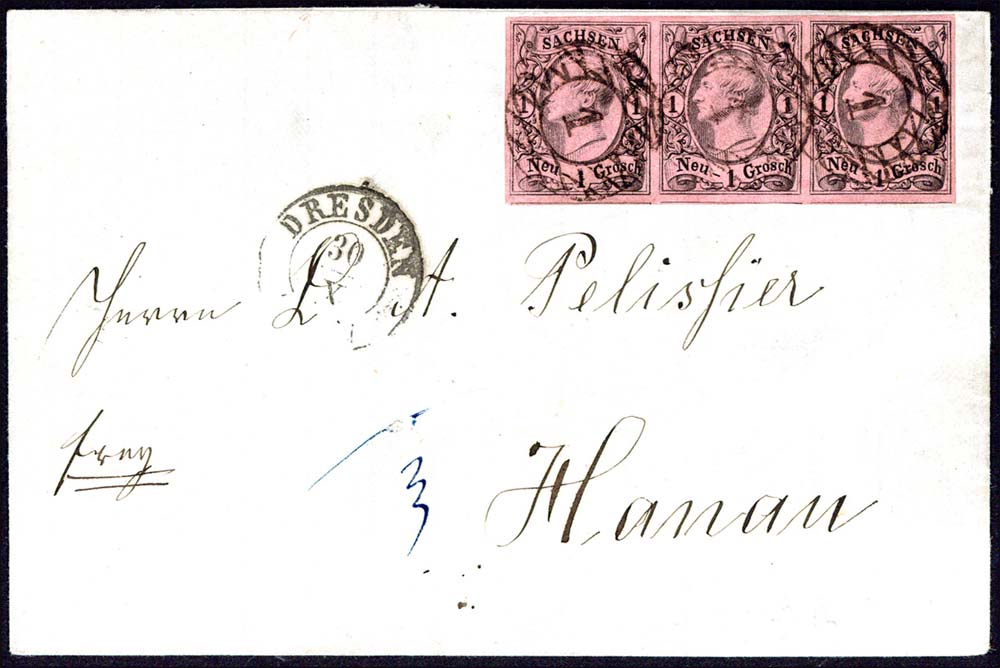 SACHSEN SACHSEN SACHSEN
1 1 1 1 1 1
Neu - 1 Grosch Neu - 1 Grosch Neu - 1 Grosch
1 1
DRESDEN
30
X
Herrn L. A. Pelissier
frey
3
Hanau